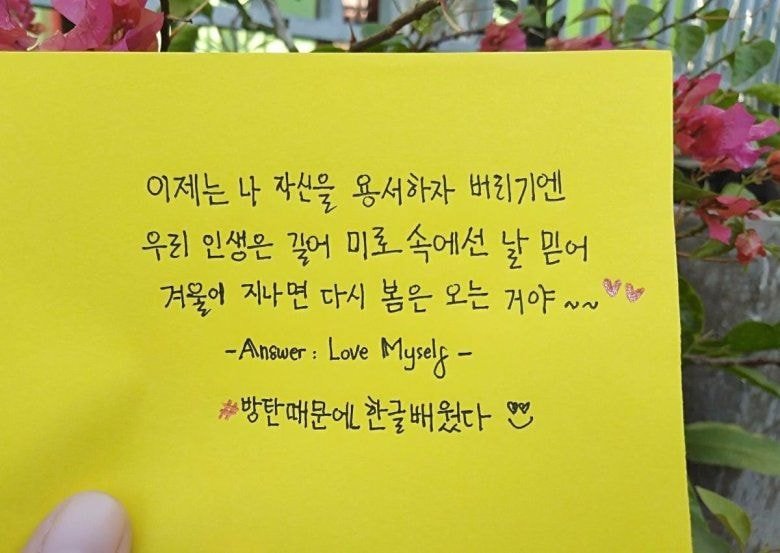 이제는 나 자신을 용서하자 버리기엔
우리 인생은 길어 미로 속에선 날 믿어
겨울이 지나면 다시 봄은 오는 거야 ~~
-Answer: Love Myself-
#방탄때문에한글배웠다